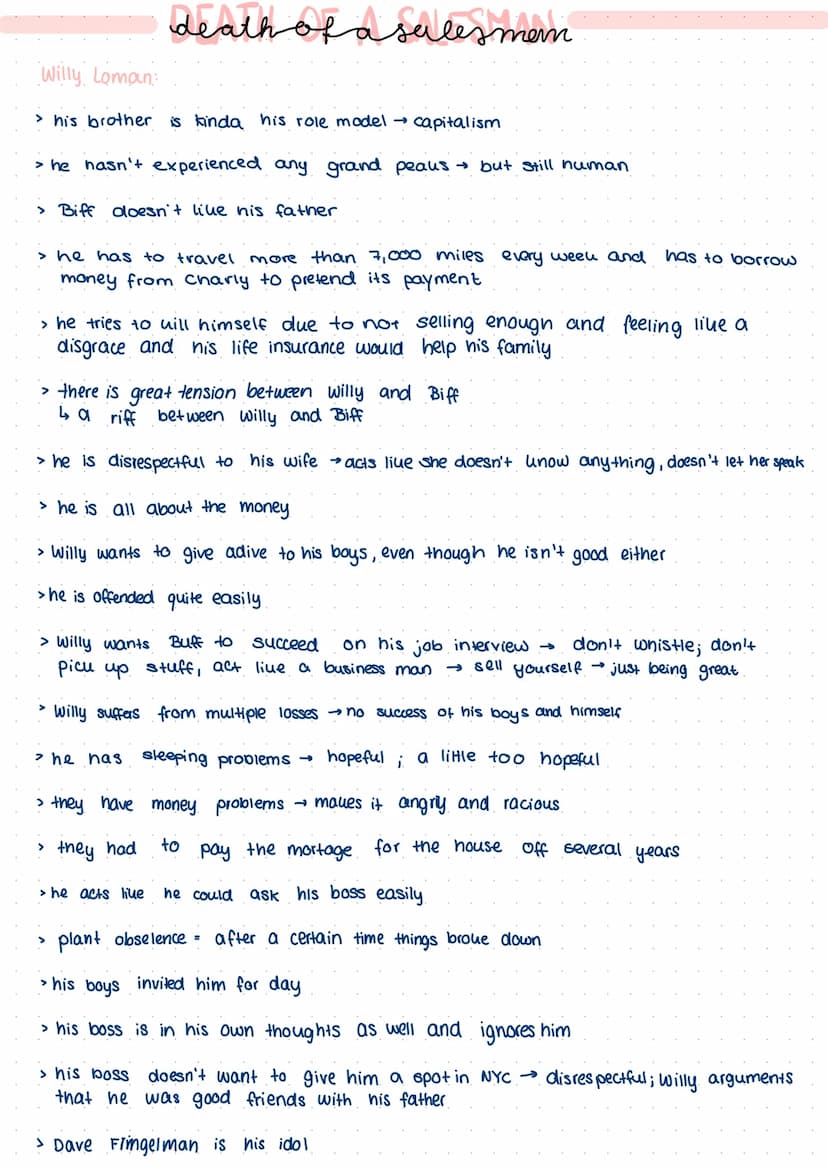 DEATH OF A SALESMAN
death of a salesman
Willy Loman:
> his brother is kinda his role model → capitalism
> he hasn't experienced any grand peaks → but still human
> Biff doesn't like his father
> he has to travel more than 7,000 miles every week and has to borrow
money from Charly to pretend its payment
> he tries to kill himself due to not selling enough and feeling like a
disgrace and his life insurance would help his family
> there is great tension between Willy and Biff
↳ a riff between Willy and Biff
> he is disrespectful to his wife → acts like she doesn't know anything, doesn't let her speak
> he is all about the money
> Willy wants to give adive to his boys, even though he isn't good either
> he is offended quite easily
> Willy wants Buff to succeed on his job interview → don't whistle; don't
pick up stuff, act like a business man → sell yourself → just being great
> Willy suffers from multiple losses → no success of his boys and himself
> he has sleeping problems → hopeful ; a little too hopeful
> they have money problems → makes it angry and racious
> they had to pay the mortage for the house off several years
> he acts like he could ask his boss easily
> plant obselence = after a certain time things broke down
> his boys invited him for day
> his boss is in his own thoughts as well and ignores him
> his boss doesn't want to give him a spot in NYC → disrespectful; Willy arguments
that he was good friends with his father
> Dave Flingelman is his idol